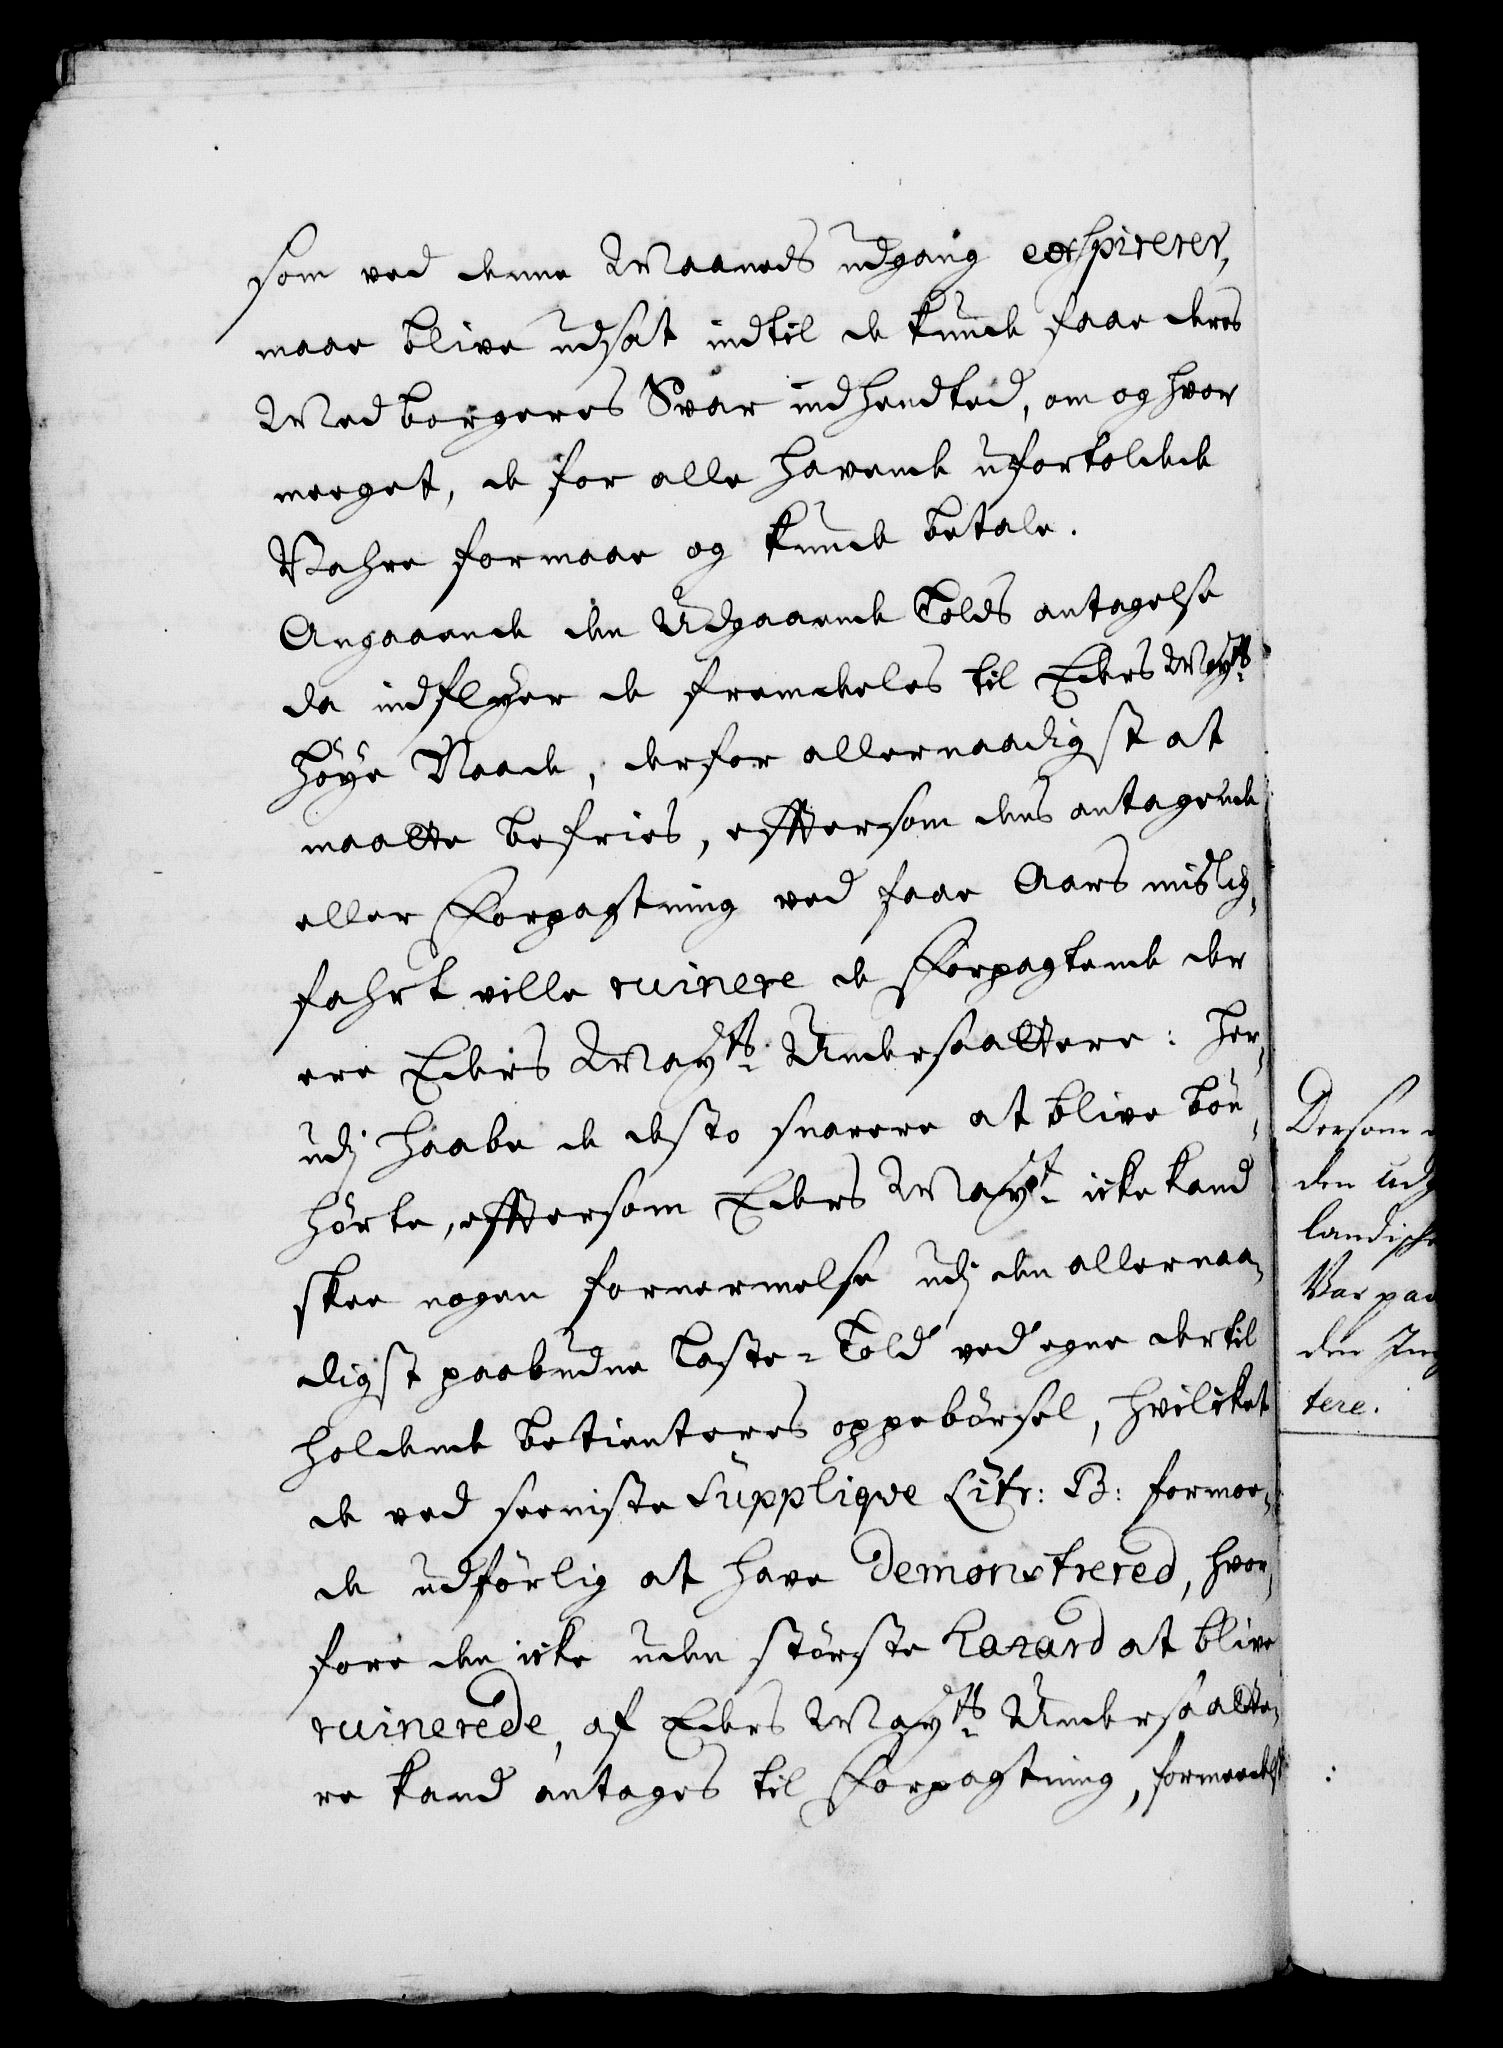 som ved denne Maaneds udgang exspirerer,
maae blive udsat indtil de kunde faae deres
Medborgeres Svar indhendted, om og hvor
meeget, de for alle havende ufortoldede
Vahre formaae og kunde betale.
Angaaende den Udgaaende Tolds antagelse
da indflyer de fremdeles til Eders Mayts
höye Naade, derfor allernaadigst at
maatte befries, efftersom dens antagende
eller Forpagtning ved faae Aars mislig,
fahrt ville ruinere de Forpagtende der
ere Eders Mayts Undersaattere: her,
udj haabe de desto snarere at blive bön,
hörte, efftersom Eders Mayt icke kand
skee nogen fornermelse udj den allernaa,
digst paabudne Laste-Told ved egne dertil
holdende betienteres oppebörsel, hvilcket
de ved seeniste Supplique Litr: B: formoe,
de udförlig at have demonstrered, hvor,
fore den icke uden störste hazard at blive
ruinerede, af Eders Mayts Undersaatte,
re kand antages til Forpagtning,
Dersom
den udg
landische
Var paa
den
tere.